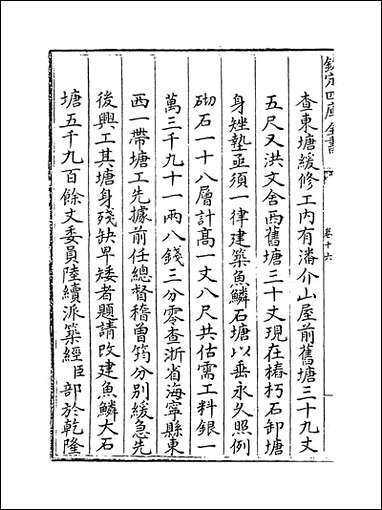 欽定四庫全書
卷十六
查東塘緩修工内有潘介山屋前舊塘三十九丈
五尺又洪文舍西舊塘三十丈現在樁朽石卸塘
身矬墊亟須一律建築魚鱗石塘以垂永久照例
砌石一十八層計高一丈八尺共估需工料銀一
萬三千九十一兩八錢三分零查浙省海寧縣東
西一帶塘工先據前任總督稽曾筠分别緩急先
後興工其塘身殘缺卑矮者題請改建魚鱗大石
塘五千九百餘丈委員陸續派築經臣部於乾隆